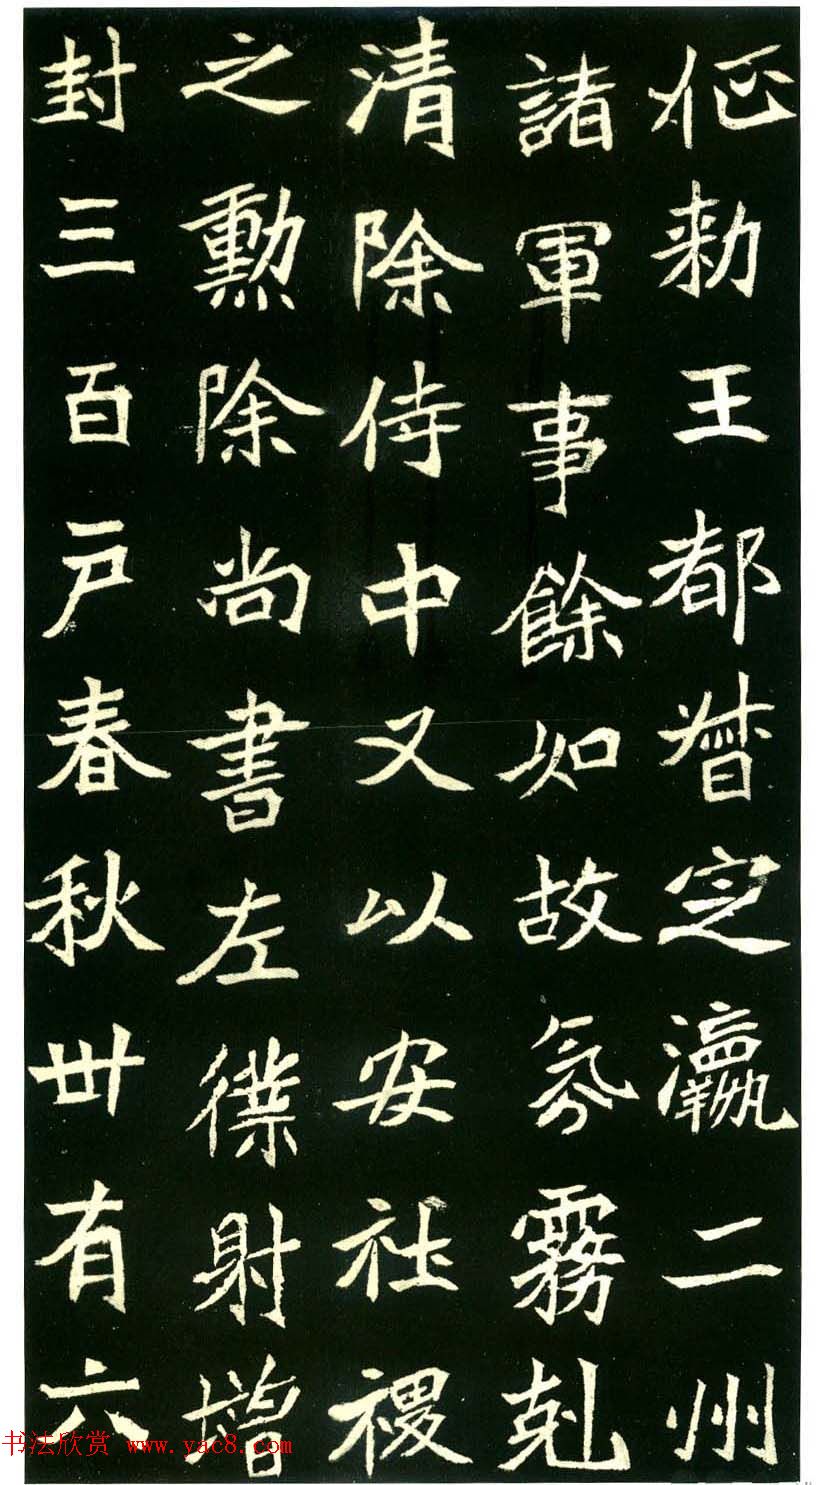 征勅王都督定瀛二州
諸軍事餘如故氛霧剋
清除侍中又以安社稷
之勳除尚書左僕射增
封三百户春秋卅有六
书法欣赏 www.yac8.com